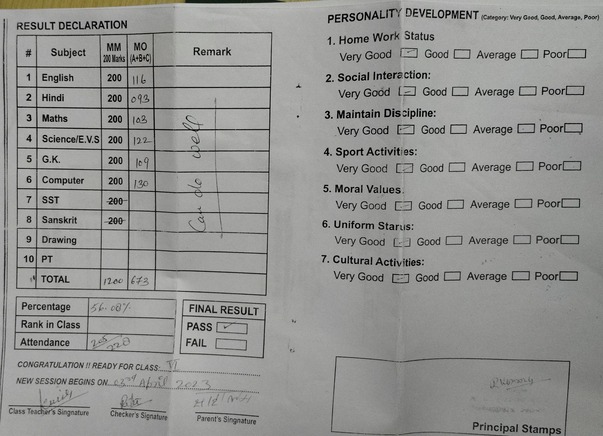 RESULT DECLARATION
# Subject MM 200 Marks MO (A+B+C) Remark
1 English 200 116
2 Hindi 200 093
3 Maths 200 103
4 Science/E.V.S 200 122
5 G.K. 200 109
6 Computer 200 130
7 SST 200
8 Sanskrit 200
9 Drawing
10 PT
TOTAL 1200 673
Can do well
Percentage 56.08%
Rank in Class
Attendance 205/220
FINAL RESULT
PASS
FAIL
CONGRATULATION !! READY FOR CLASS: VI
NEW SESSION BEGINS ON 03rd April 2023
Class Teacher's Singnature
Checker's Signature
Parent's Signature
PERSONALITY DEVELOPMENT (Category: Very Good, Good, Average, Poor)
1. Home Work Status
Very Good Good Average Poor
2. Social Interaction:
Very Good Good Average Poor
3. Maintain Discipline:
Very Good Good Average Poor
4. Sport Activities:
Very Good Good Average Poor
5. Moral Values:
Very Good Good Average Poor
6. Uniform Starus:
Very Good Good Average Poor
7. Cultural Activities:
Very Good Good Average Poor
Principal Stamps